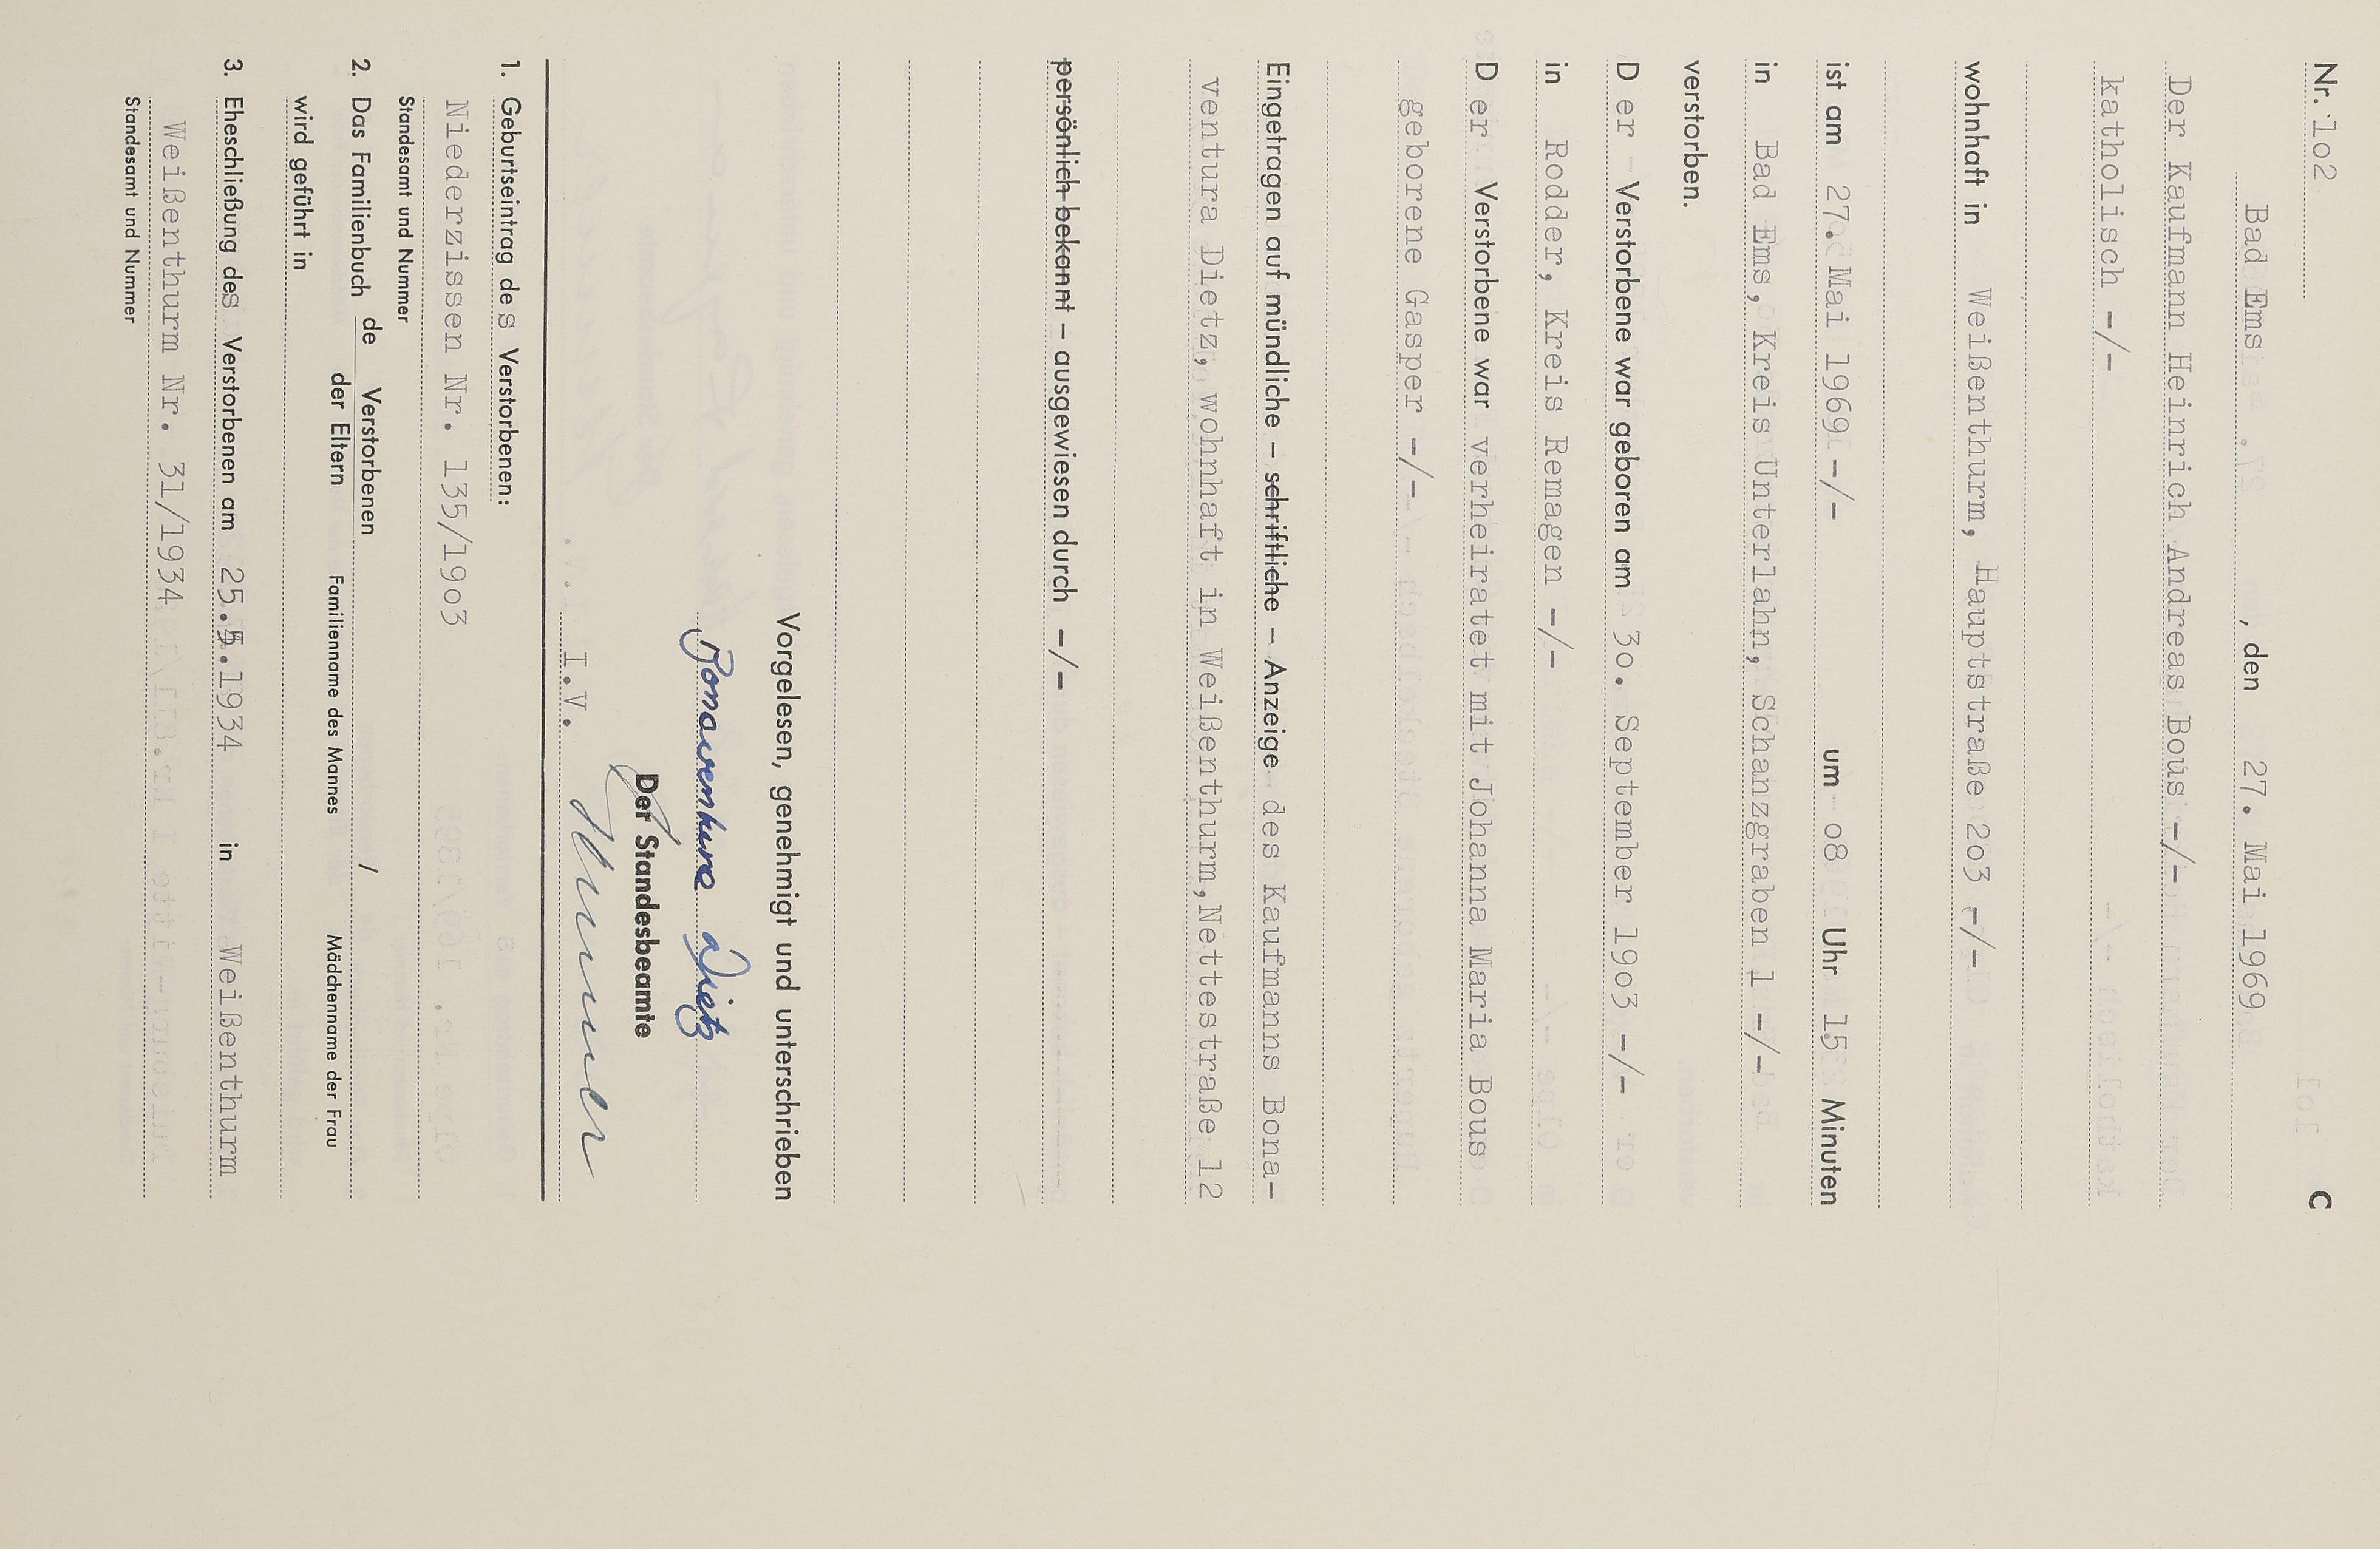 Nr. lo2 C
Bad Ems, den 27. Mai 1969
Der Kaufmann Heinrich Andreas Bous -/-
katholisch -/-
wohnhaft in Weißenthurm, Hauptstraße 2o3 -/-
ist am 27. Mai 1969 -/- um o8 Uhr 15 Minuten
in Bad Ems, Kreis Unterlahn, Schanzgraben 1 -/-
verstorben.
D er Verstorbene war geboren am 3o. September 19o3 -/-
in Rodder, Kreis Remagen -/-
D er Verstorbene war verheiratet mit Johanna Maria Bous
geborene Gasper -/-
Eingetragen auf mündliche – schriftliche – Anzeige des Kaufmanns Bona-
ventura Dietz, wohnhaft in Weißenthurm,Nettestraße 12
persönlich bekannt – ausgewiesen durch -/-
Vorgelesen, genehmigt und unterschrieben
Bonaventura Dietz
Der Standesbeamte
I.V.
1. Geburtseintrag des Verstorbenen:
Niederzissen Nr. 135/19o3
Standesamt und Nummer
2. Das Familienbuch de Verstorbenen /
der Eltern Familienname des Mannes Mädchenname der Frau
wird geführt in
3. Eheschließung des Verstorbenen am 25.5.1934 in Weißenthurm
Weißenthurm Nr. 31/1934
Standesamt und Nummer